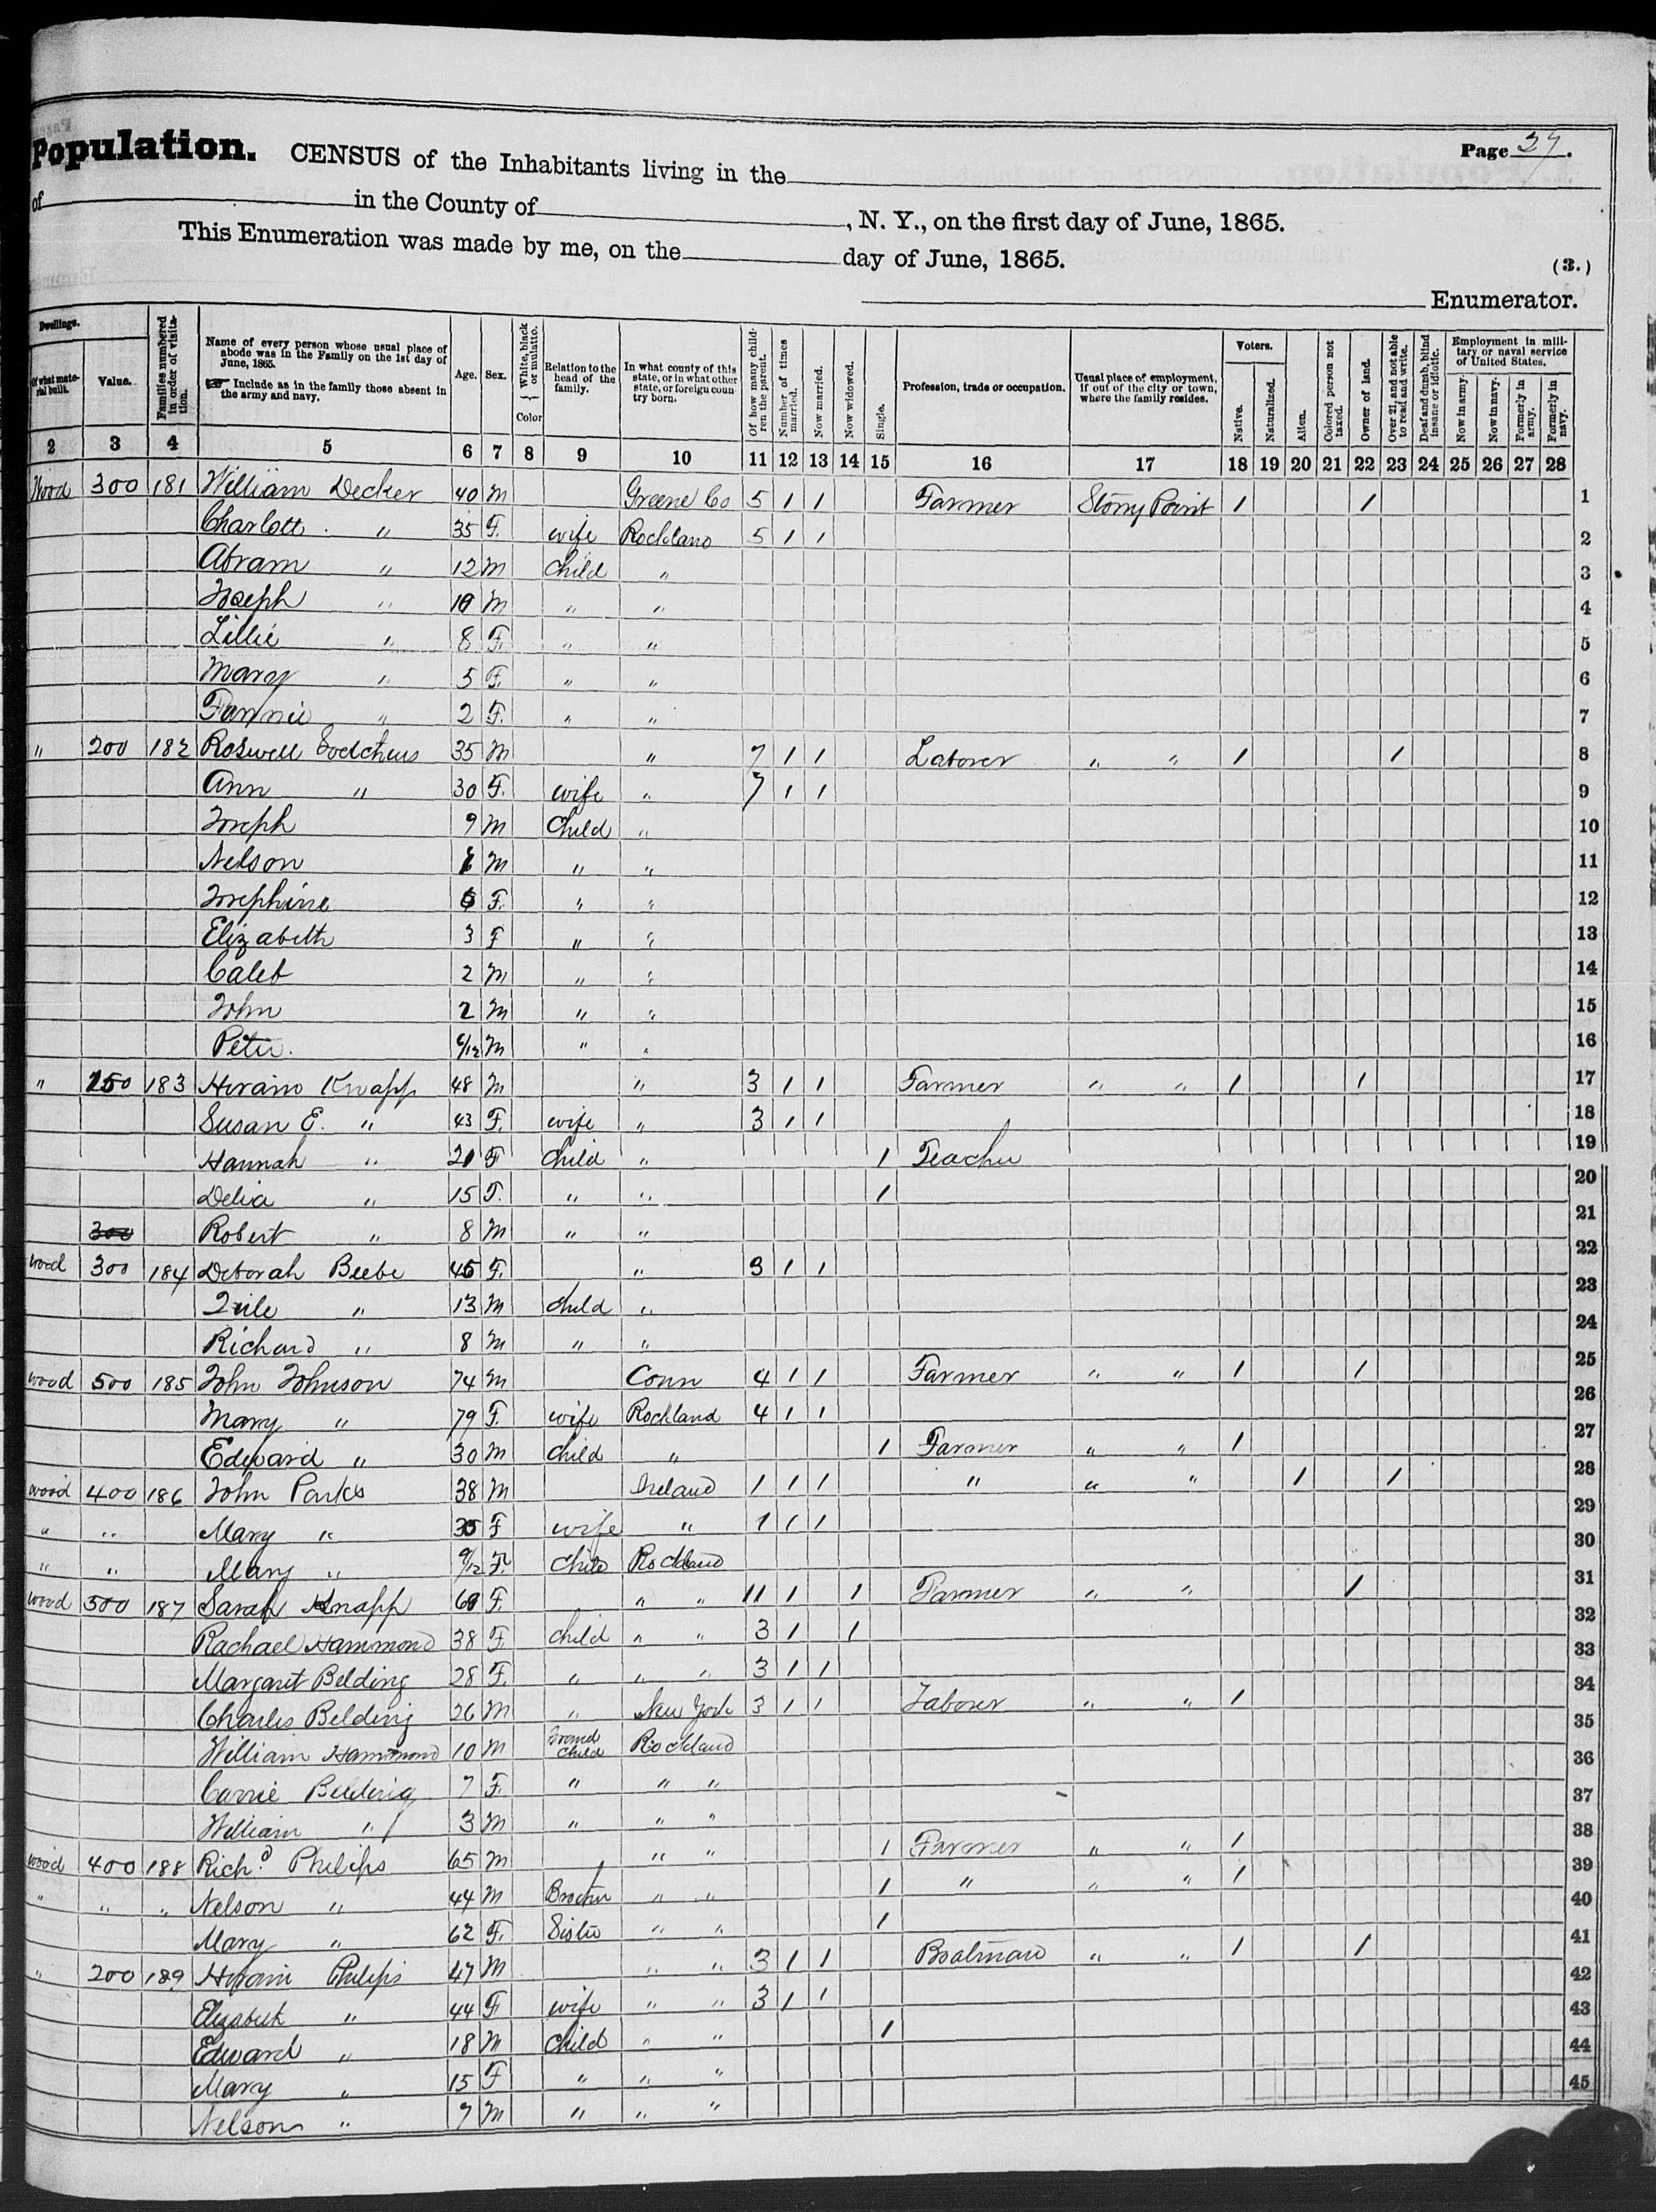 Population. CENSUS of the Inhabitants living in the Page 27.
of in the County of , N. Y., on the first day of June, 1865.
This Enumeration was made by me, on the day of June, 1865. (3.)
Enumerator.
Dwellings. Of what material built. Value. Families numbered in order of visitation. Name of every person whose usual place of abode was in the Family on the 1st day of June, 1865. Include as in the family those absent in the army and navy. Age. Sex. White, black or mulatto. Color Relation to the head of the family. In what county of this state, or in what other state, or foreign country born. Of how many children the parent. Number of times married. Now married. Now widowed. Single. Profession, trade or occupation. Usual place of employment, if out of the city or town, where the family resides. Voters. Native. Naturalized. Alien. Colored person not taxed. Owner of land. Over 21, and not able to read and write. Deaf and dumb, blind insane or idiotic. Employment in military or naval service of United States. Now in army. Now in navy. Formerly in army. Formerly in navy.
2 3 4 5 6 7 8 9 10 11 12 13 14 15 16 17 18 19 20 21 22 23 24 25 26 27 28
Wood 300 181 William Decker 40 M Greene Co 5 1 1 Farmer Stony Point 1 1 1
Charlott " 35 F. wife Rockland 5 1 1 2
Abram " 12 M Child " 3
Joseph " 10 M " " 4
Lillie " 8 F. " " 5
Mary " 5 F. " " 6
Fannie " 2 F. " " 7
" 200 182 Roswell 35 M " 7 1 1 Laborer " " 1 1 8
Ann " 30 F. wife " 7 1 1 9
Joseph 9 M Child " 10
Nelson M " " 11
Josephine F. " " 12
Elizabeth 3 F " " 13
Caleb 2 M " " 14
John 2 M " " 15
Peter. 6/12 M " " 16
" 183 Hiram Knapp 48 M " 3 1 1 Farmer " " 1 1 17
Susan E. " 43 F. wife " 3 1 1 18
Hannah " F Child " 1 Teacher 19
Delia " 15 F. " " 1 20
300 Robert " 8 M " " 21
wood 300 184 Deborah Beebe 45 F. " 3 1 1 22
" 13 M child " 23
Richard " 8 M " " 24
wood 500 185 John Johnson 74 M Conn 4 1 1 Farmer " " 1 1 25
Mary " 79 F. wife Rockland 4 1 1 26
Edward " 30 M child " 1 Farmer " " 1 27
wood 400 186 John Parks 38 M Ireland 1 1 1 " " " 1 1 28
" " Mary " F wife " 1 1 1 29
" " Mary " 9/12 F. Child Rockland 30
wood 500 187 Sarah Knapp F. " " 11 1 1 Farmer " " 1 31
Rachael Hammond 38 F. child " " 3 1 1 32
Margaret Belding 28 F. " " " 3 1 1 33
Charles Belding 26 M " New York 3 1 1 Laborer " " 1 34
William Hammond 10 M Grand Child Rockland 35
Carrie Belding 7 F. " " " 36
William " 3 M " " " 37
wood 400 188 Richd. Philips 65 M " " 1 Farmer " " 1 38
" " " Nelson " 44 M Brother " " 1 " " " 1 39
Mary " 62 F. Sister " " 1 40
" 200 189 Hiram Philips 47 M " " 3 1 1 Boatman " " 1 1 41
Elizabeth " 44 F wife " " 3 1 1 42
Edward " 18 M Child " " 1 43
Mary " 15 F " " " 44
Nelson " 7 M " " " 45